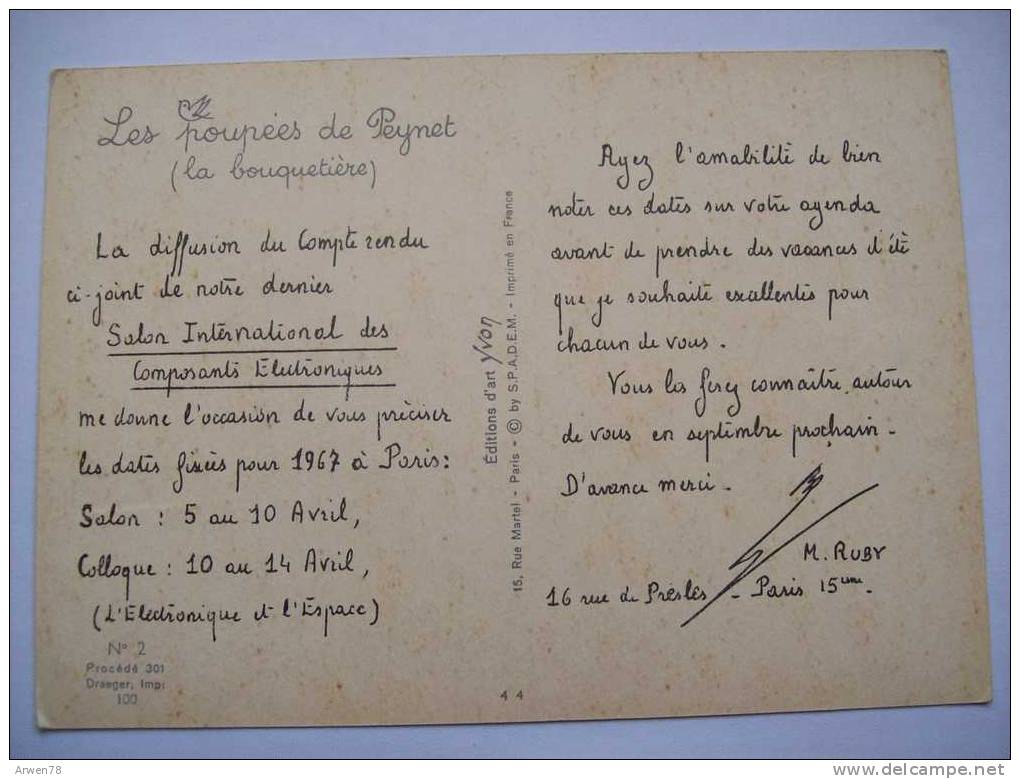 Les poupées de Peynet
(la bouquetière)
La diffusion du Compte rendu
ci-joint de notre dernier
Salon International des
Composants Electroniques
me donne l'occasion de vous préciser
les dates fixées pour 1967 à Paris :
Salon : 5 au 10 Avril,
Colloque : 10 au 14 Avril,
(L'Electronique et l'Espace)
N° 2
Procédé 301
Draeger, Imp:
100
Éditions d'art Yvon
15, Rue Martel - Paris - © by S.P.A.D.E.M. - Imprimé en France
44
Ayez l'amabilité de bien
noter ces dates sur votre agenda
avant de prendre des vacances d'été
que je souhaite excellentes pour
chacun de vous.
Vous les ferez connaître autour
de vous en septembre prochain -
D'avance merci -
M. RUBY
16 rue de Presles - Paris 15ème -
Arwen78
http://www.delcampe.net